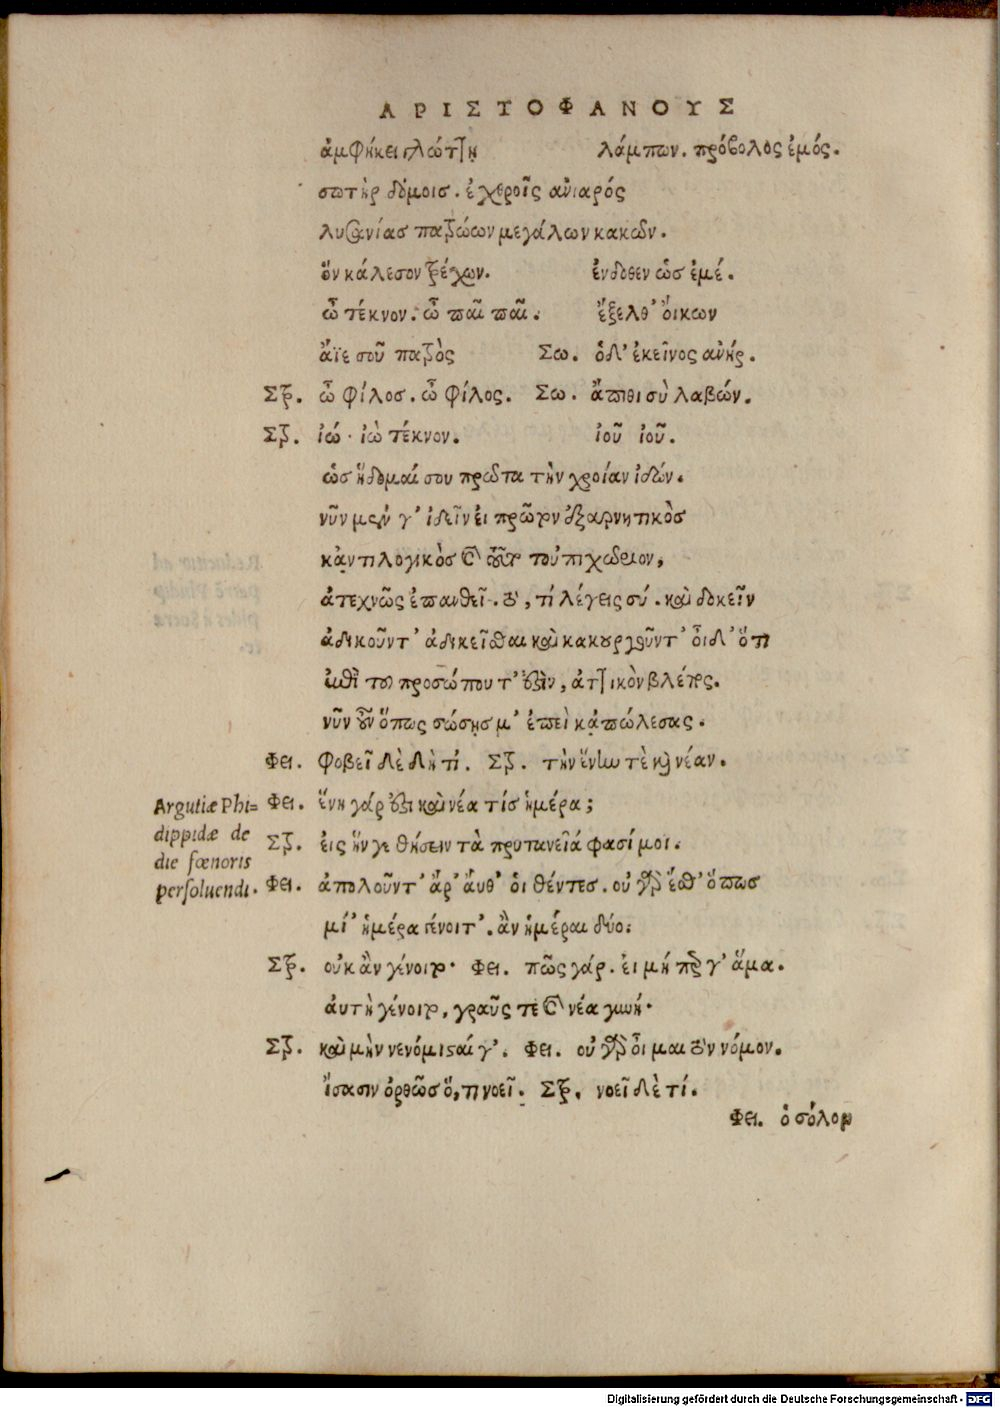 ΑΡΙΣΤΟΦΑΝΟΥΣ
ἀμφήκει γλώττῃ λάμπων. πρόβολος ἐμός.
σωτὴρ δόμοισ. ἐχθροῖς ἀνιαρός
λυσανίας πατρώων μεγάλων κακῶν.
ὃν κάλεσον τρέχων. ἔνδοθεν ὡσ ἐμέ.
ὦ τέκνον. ὦ παῖ παῖ. ἔξελθ' ὄικων
ἄϊε σοῦ πατρὸς Σω. ὁδ' ἐκεῖνος ἀνήρ.
Στρ. ὦ φίλοσ. ὦ φίλος. Σω. ἄπιθι σὺ λαβών.
Στρ. ἰώ. ἰὼ τέκνον. ἰοῦ ἰοῦ.
ὡσ ἥδομαί σου πρῶτα τὴν χροίαν ἰδών.
νῦν μέν γ' ἰδεῖν ἐι πρῶτον ἐξαρνητικὸσ
κἀντιλογικὸσ καὶ τοῦτο τοὐπιχώριον,
ἀτεχνῶς ἐπανθεῖ. ὁ, τί λέγεις σύ. καὶ δοκεῖν
ἀδικοῦντ' ἀδικεῖσθαι καὶ κακουργοῦντ' οἶδ' ὅτι
ἐπὶ τοῦ προσώπου τ' ἐστὶν, ἀττικὸν βλέπος.
νῦν οὖν ὅπως σώσησ μ' ἐπεὶ κἀπώλεσας.
Φει. φοβεῖ δὲ δὴ τί. Στρ. τὴν ἕνην τὲ καὶ νέαν.
Φει. ἕνη γάρ ἐστι καὶ νέα τίσ ἡμέρα;
Στρ. ἐις ἥν γε θήσειν τὰ πρυτανεῖά φασί μοι.
Φει. ἀπολοῦντ' ἄρ' ἄυθ' ὁι θέντεσ. οὐ γὰρ ἔσθ' ὅπωσ
μί' ἡμέρα γένοιτ'. ἂν ἡμέραι δύο.
Στρ. οὐκ ἂν γένοιτο. Φει. πῶς γάρ. ἐι μή περ γ' ἅμα.
ἁυτὴ γένοιτο, γραῦς τε καὶ νέα γυνή.
Στρ. καὶ μὴν νενόμισαί γ'. Φει. οὐ γὰρ οἶμαι τὸν νόμον.
ἴσασιν ὀρθῶσ ὅ, τι νοεῖ. Στρ. νοεῖ δὲ τί.
Φει. ὁ σόλων
Argutiæ Phi=
dippidæ de
die fœnoris
persoluendi.
Digitalisierung gefördert durch die Deutsche Forschungsgemeinschaft - DFG